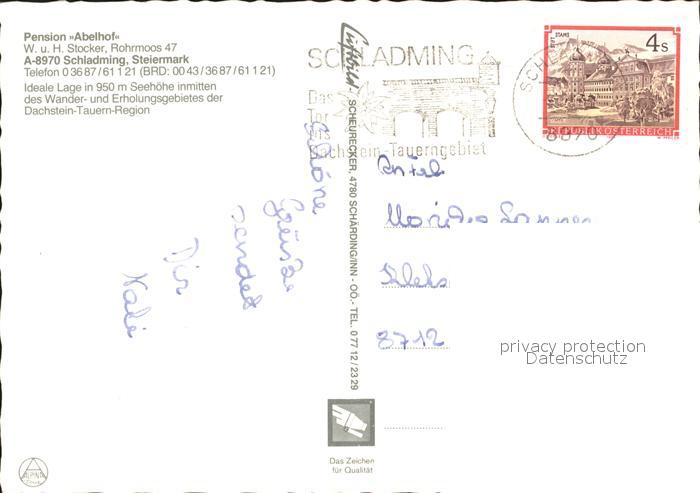 Pension »Abelhof«
W. u. H. Stocker, Rohrmoos 47
A-8970 Schladming, Steiermark
Telefon 0 36 87 / 61 1 21 (BRD: 00 43 / 36 87 / 61 1 21)
Ideale Lage in 950 m Seehöhe inmitten
des Wander- und Erholungsgebietes der
Dachstein-Tauern-Region
Luftbild SCHEURECKER, 4780 SCHÄRDING/INN - OÖ.- TEL. 0 77 12 / 23 29
SCHLADMING
Das
Tor
des
Dachstein-Tauerngebiet
STIFT STAMS
4 S
REPUBLIK ÖSTERREICH
Schöne
Grüsse
sendet
Dir
8712
privacy protection
Datenschutz
Das Zeichen
für Qualität
ALPINA